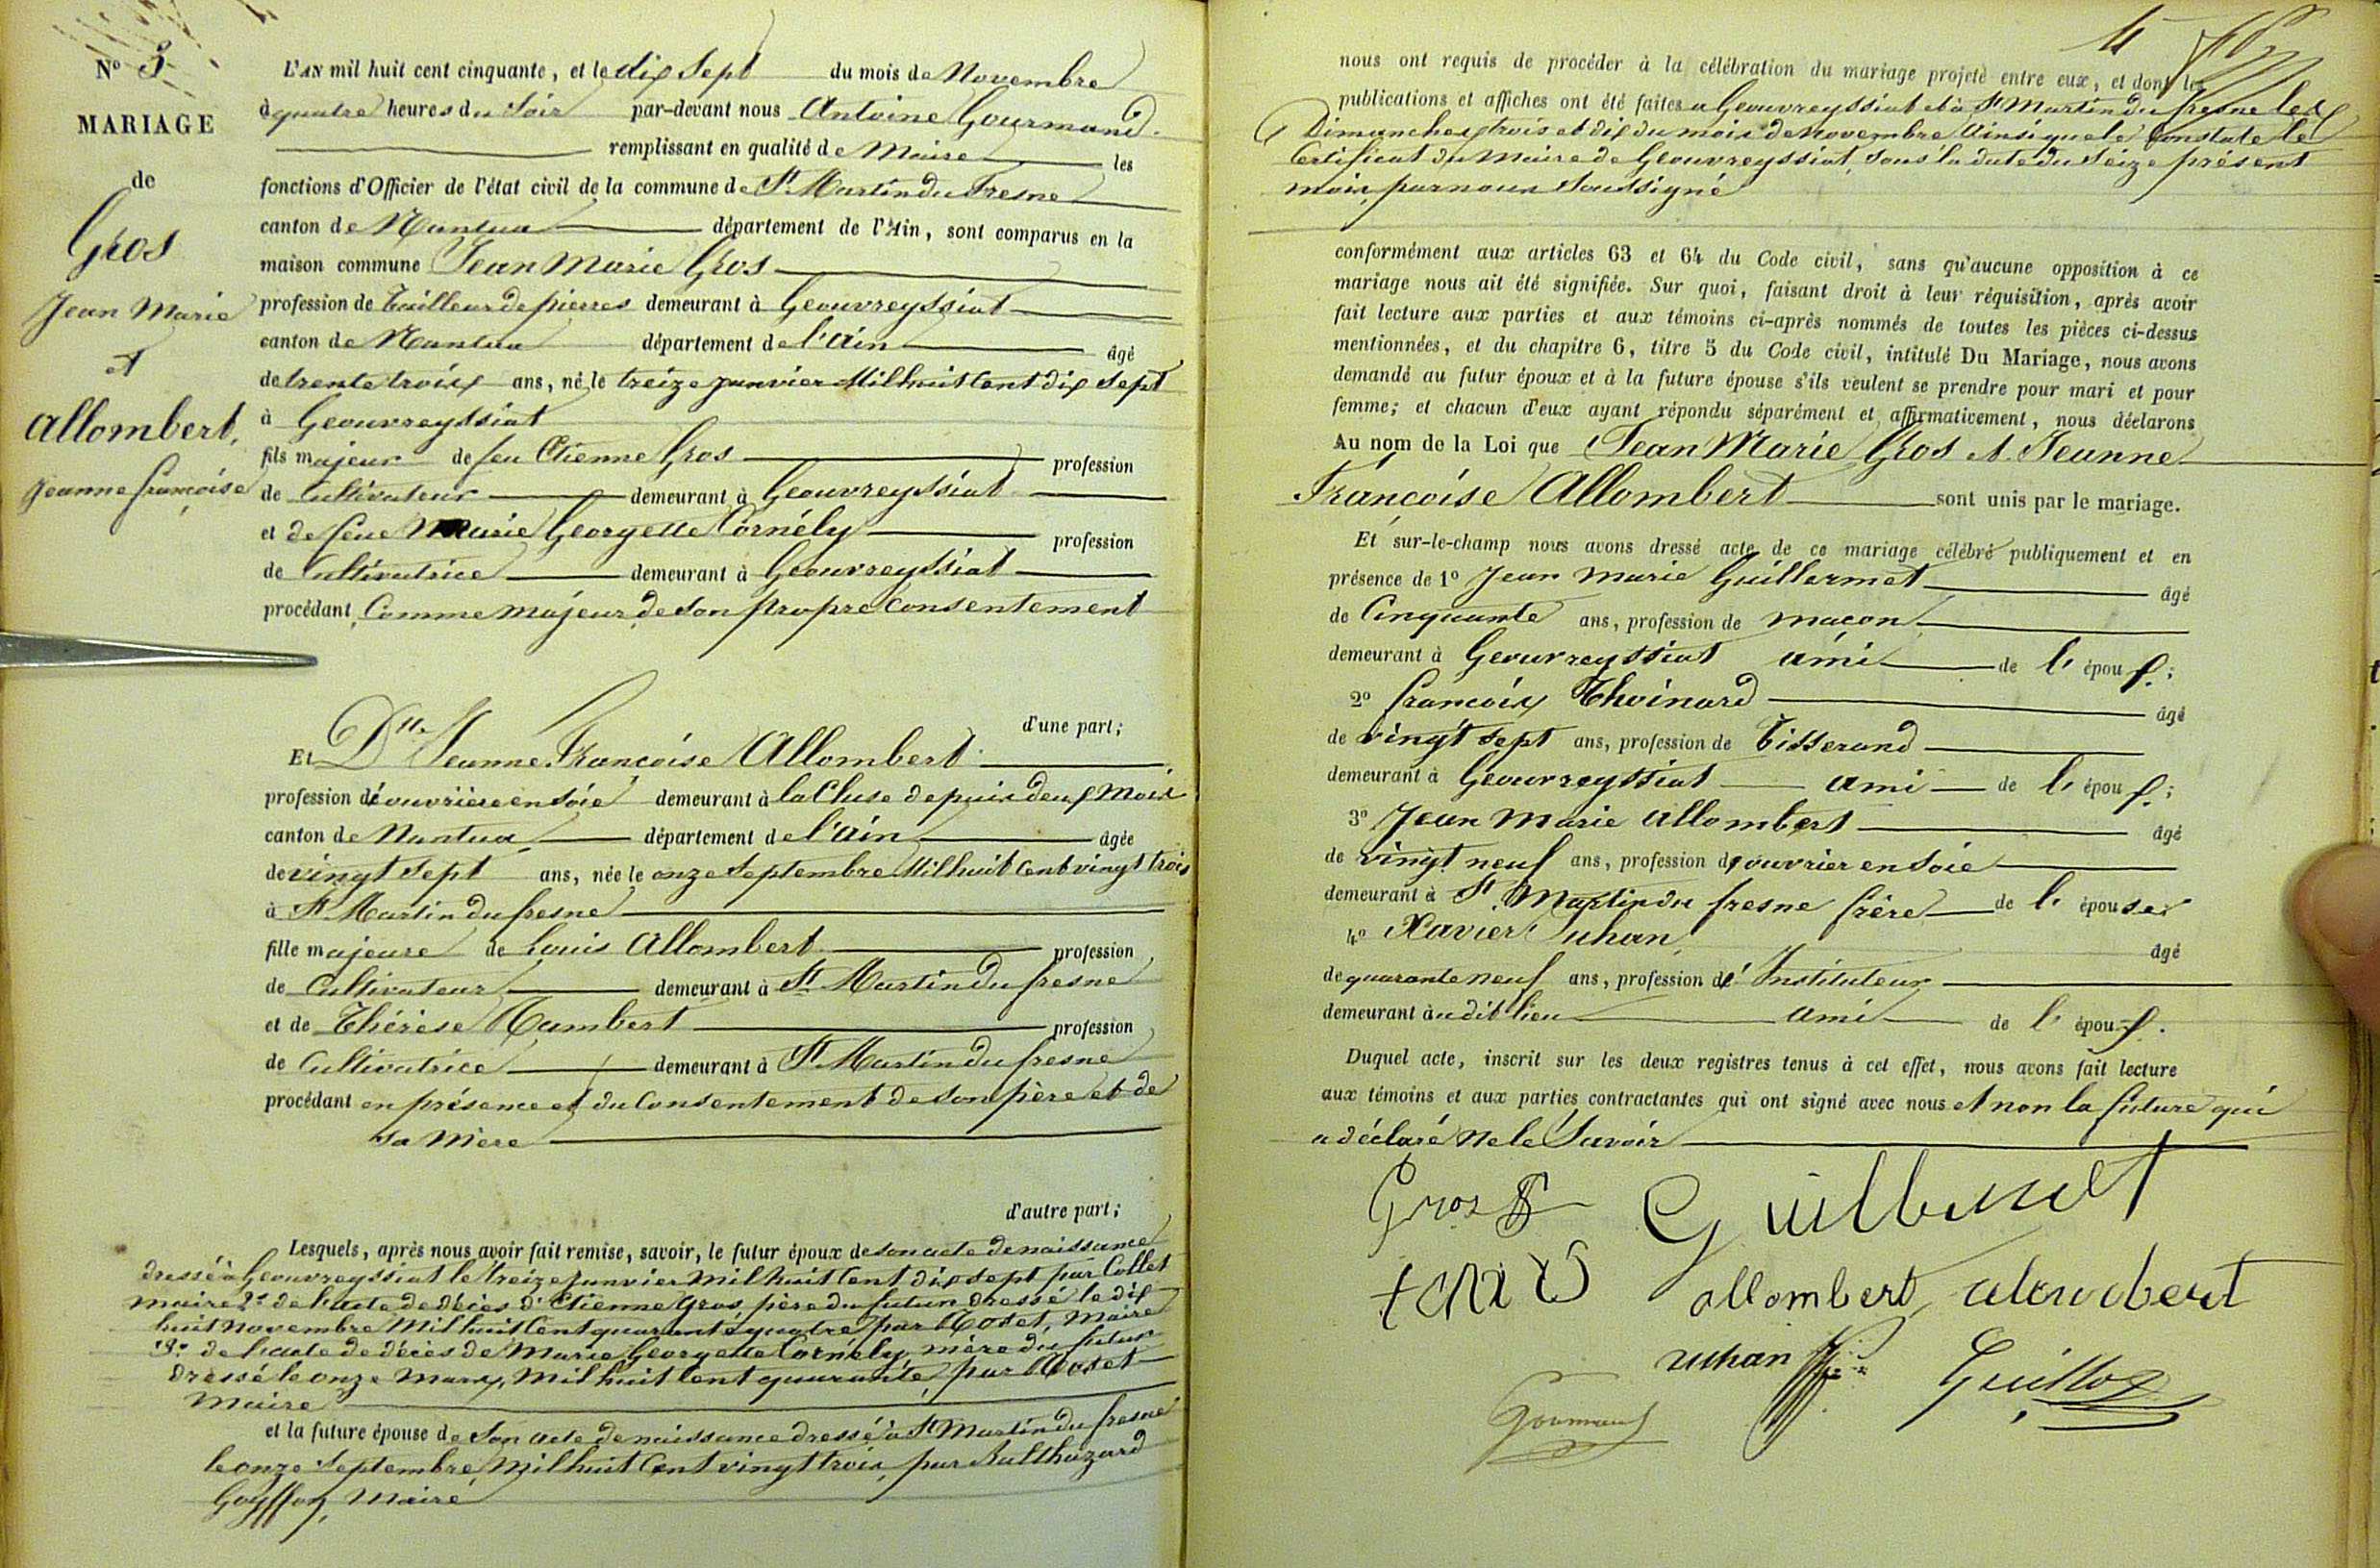 N° 3
MARIAGE
de
Gros
Jean Marie
et
Allombert,
Jeanne françoise
L'AN mil huit cent cinquante, et le dix Sept du mois de Novembre
à quatre heures du Soir par-devant nous Antoine Gourmand
remplissant en qualité de Maire les
fonctions d'Officier de l'état civil de la commune de St Martin du Fresne
canton de Nantua département de l'Ain, sont comparus en la
maison commune Jean Marie Gros
profession de Tailleur de pierres demeurant à Geouvreyssiat
canton de Nantua département de l'Ain âgé
de trente trois ans, né le treize janvier Mil huit Cent dix Sept
à Geouvreyssiat
fils majeur de feu Etienne Gros profession
de Cultivateur demeurant à Geouvreyssiat
et de feue Marie Georgette Cornély profession
de Cultivatrice demeurant à Geouvreyssiat
procédant Comme majeur de son propre Consentement
d'une part;
Et Dlle Jeanne Françoise Allombert
profession d'ouvrière en Soie demeurant à la Cluse depuis deux Mois
canton de Nantua département de l'Ain âgée
de vingt Sept ans, née le onze Septembre Mil huit Cent vingt trois
à St Martin du fresne
fille majeure de Louis Allombert profession
de Cultivateur demeurant à St Martin du fresne
et de Thérèse Hambert profession
de Cultivatrice demeurant à St Martin du fresne
procédant en présence et du Consentement de son père et de
sa Mère
d'autre part;
Lesquels, après nous avoir fait remise, savoir, le futur époux de son acte de naissance
dressé à Geouvreyssiat le treize janvier Mil huit Cent dix sept par Collet
maire 2° de l'acte de décès d'Etienne Gros, père du futur dressé le dix
huit Novembre Mil huit Cent quarante quatre par Moset, Maire
3° de l'acte de décès de Marie Georgette Cornély, mère du futur
dressé le onze Mars, Mil huit Cent quarante, par Moset
Maire
et la future épouse de Son acte de naissance dressé à St Martin du fresne
le onze Septembre Mil huit Cent vingt trois, par Balthazard
Goyffon, Maire
nous ont requis de procéder à la célébration du mariage projeté entre eux, et dont les
publications et affiches ont été faites a Geouvreyssiat et à St Martin du fresne les
Dimanches trois et dix du mois de Novembre Ainsi que le Constate le
Certificat du Maire de Geouvreyssiat, sous la date du Seize présent
mois, par nous Soussigné
conformément aux articles 63 et 64 du Code civil, sans qu'aucune opposition à ce
mariage nous ait été signifiée. Sur quoi, faisant droit à leur réquisition, après avoir
fait lecture aux parties et aux témoins ci-après nommés de toutes les pièces ci-dessus
mentionnées, et du chapitre 6, titre 5 du Code civil, intitulé Du Mariage, nous avons
demandé au futur époux et à la future épouse s'ils veulent se prendre pour mari et pour
femme; et chacun d'eux ayant répondu séparément et affirmativement, nous déclarons
Au nom de la Loi que Jean Marie Gros et Jeanne
Françoise Allombert sont unis par le mariage.
Et sur-le-champ nous avons dressé acte de ce mariage célébré publiquement et en
présence de 1° Jean Marie Guillermet âgé
de Cinquante ans, profession de maçon
demeurant à Geouvreyssiat ami de l'époux;
2° françois Thoinard âgé
de vingt sept ans, profession de Tisserand
demeurant à Geouvreyssiat ami de l'époux;
3° Jean Marie Allombert âgé
de vingt neuf ans, profession d'ouvrier en Soie
demeurant à St Martin du fresne frère de l'épouse
4° Xavier Juhan âgé
de quarante neuf ans, profession d'Instituteur
demeurant audit lieu ami de l'époux.
Duquel acte, inscrit sur les deux registres tenus à cet effet, nous avons fait lecture
aux témoins et aux parties contractantes qui ont signé avec nous et non la future qui
a déclaré ne le Savoir
Gros
allombert
Juhan
Guilloz
Gourmand